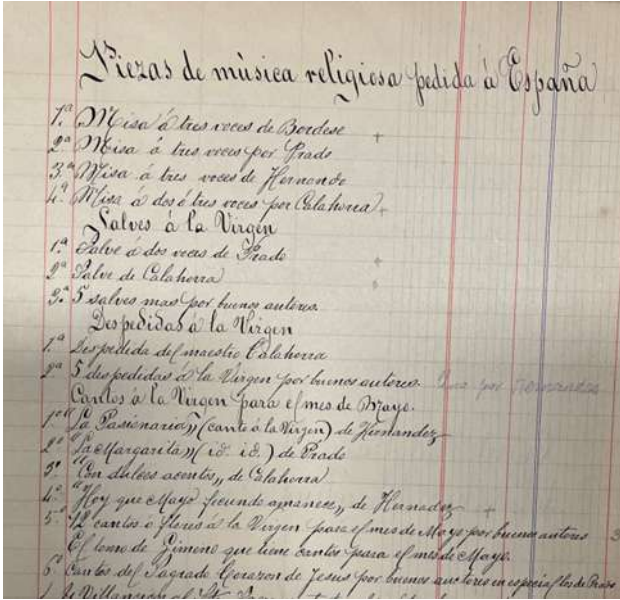 Piezas de música religiosa pedida á España
1.ª Misa á tres voces de Bordese +
2ª Misa á tres voces por Prado
3.ª Misa á tres voces de Hernando
4.ª Misa á dos ó tres voces por Calahorra +
Salves á la Virgen
1.ª Salve á dos voces de Prado +
2ª Salve de Calahorra
3.ª 5 salves mas por buenos autores.
Despedidas á la Virgen
1.ª Despedida del maestro Calahorra
2ª 5 despedidas á la Virgen por buenos autores. Una por Hernandez
Cantos á la Virgen para el mes de Mayo.
1º "La Pasionaria" (canto á la Virgen) de Hernandez
2º "La Margarita" (id. id.) de Prado
3º "Con dulces acentos" de Calahorra
4º "Hoy que Mayo fecundo amanece" de Hernadez +
5º 12 cantos ó flores á la Virgen para el mes de Mayo por buenos autores 3
El tomo de Gimeno que tiene cantos para el mes de Mayo.
6º Cantos del Sagrado Corazon de Jesus por buenos auctores en especial los de Prado